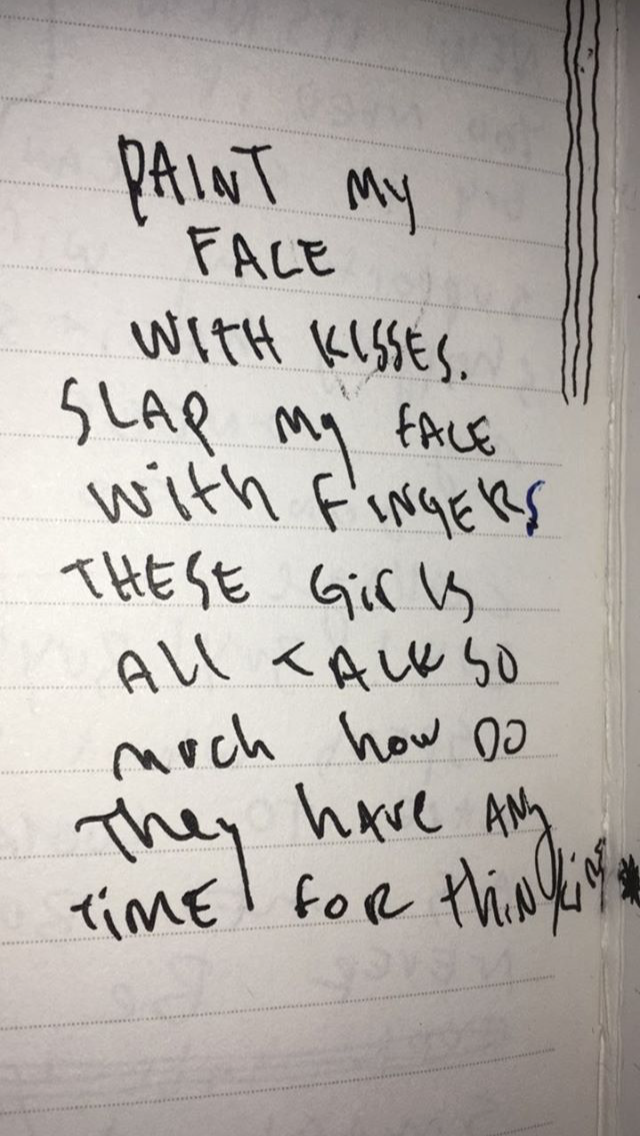 PAINT My
FACE
WITH KISSES.
SLAP My fACE
with FINGERS
THESE Girls
All TALK SO
much how DO
They hAVE ANy
TiME foR thiNking